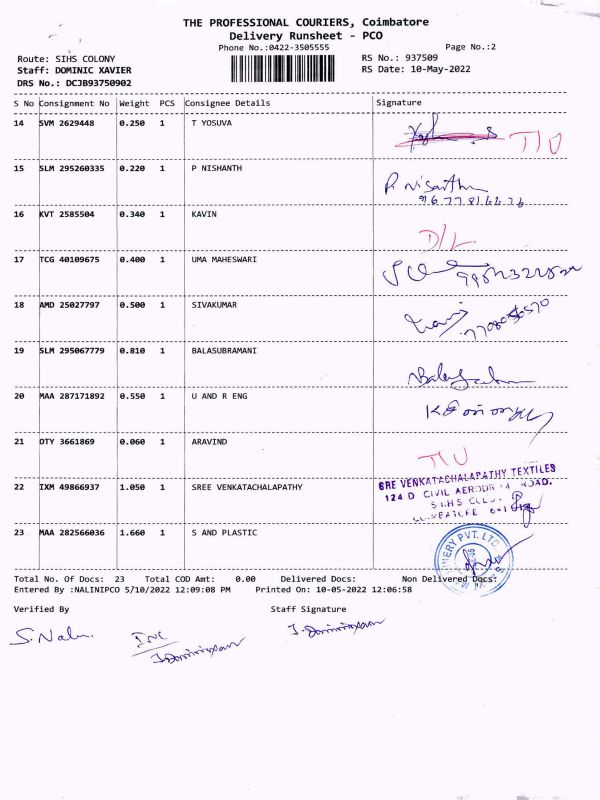 THE PROFESSIONAL COURIERS, Coimbatore
Delivery Runsheet - PCO
Phone No.:0422-3505555
Page No.:2
Route: SIHS COLONY
RS No.: 937509
Staff: DOMINIC XAVIER
RS Date: 10-May-2022
DRS No.: DCJB93750902
S No Consignment No Weight PCS Consignee Details Signature
14 SVM 2629448 0.250 1 T YOSUVA
15 SLM 295260335 0.220 1 P NISHANTH P Nisanth
16 KVT 2585504 0.340 1 KAVIN D/L
17 TCG 40109675 0.400 1 UMA MAHESWARI
18 AMD 25027797 0.500 1 SIVAKUMAR
19 SLM 295067779 0.810 1 BALASUBRAMANI
20 MAA 287171892 0.550 1 U AND R ENG
21 DTY 3661869 0.060 1 ARAVIND
22 IXM 49866937 1.050 1 SREE VENKATACHALAPATHY
SRE VENKATACHALAPATHY TEXTILES
124 D CIVIL AERODR ROAD.
23 MAA 282566036 1.660 1 S AND PLASTIC
PVT. LTD
Total No. Of Docs: 23 Total COD Amt: 0.00 Delivered Docs: Non Delivered Docs:
Entered By :NALINIPCO 5/10/2022 12:09:08 PM Printed On: 10-05-2022 12:06:58
Verified By Staff Signature